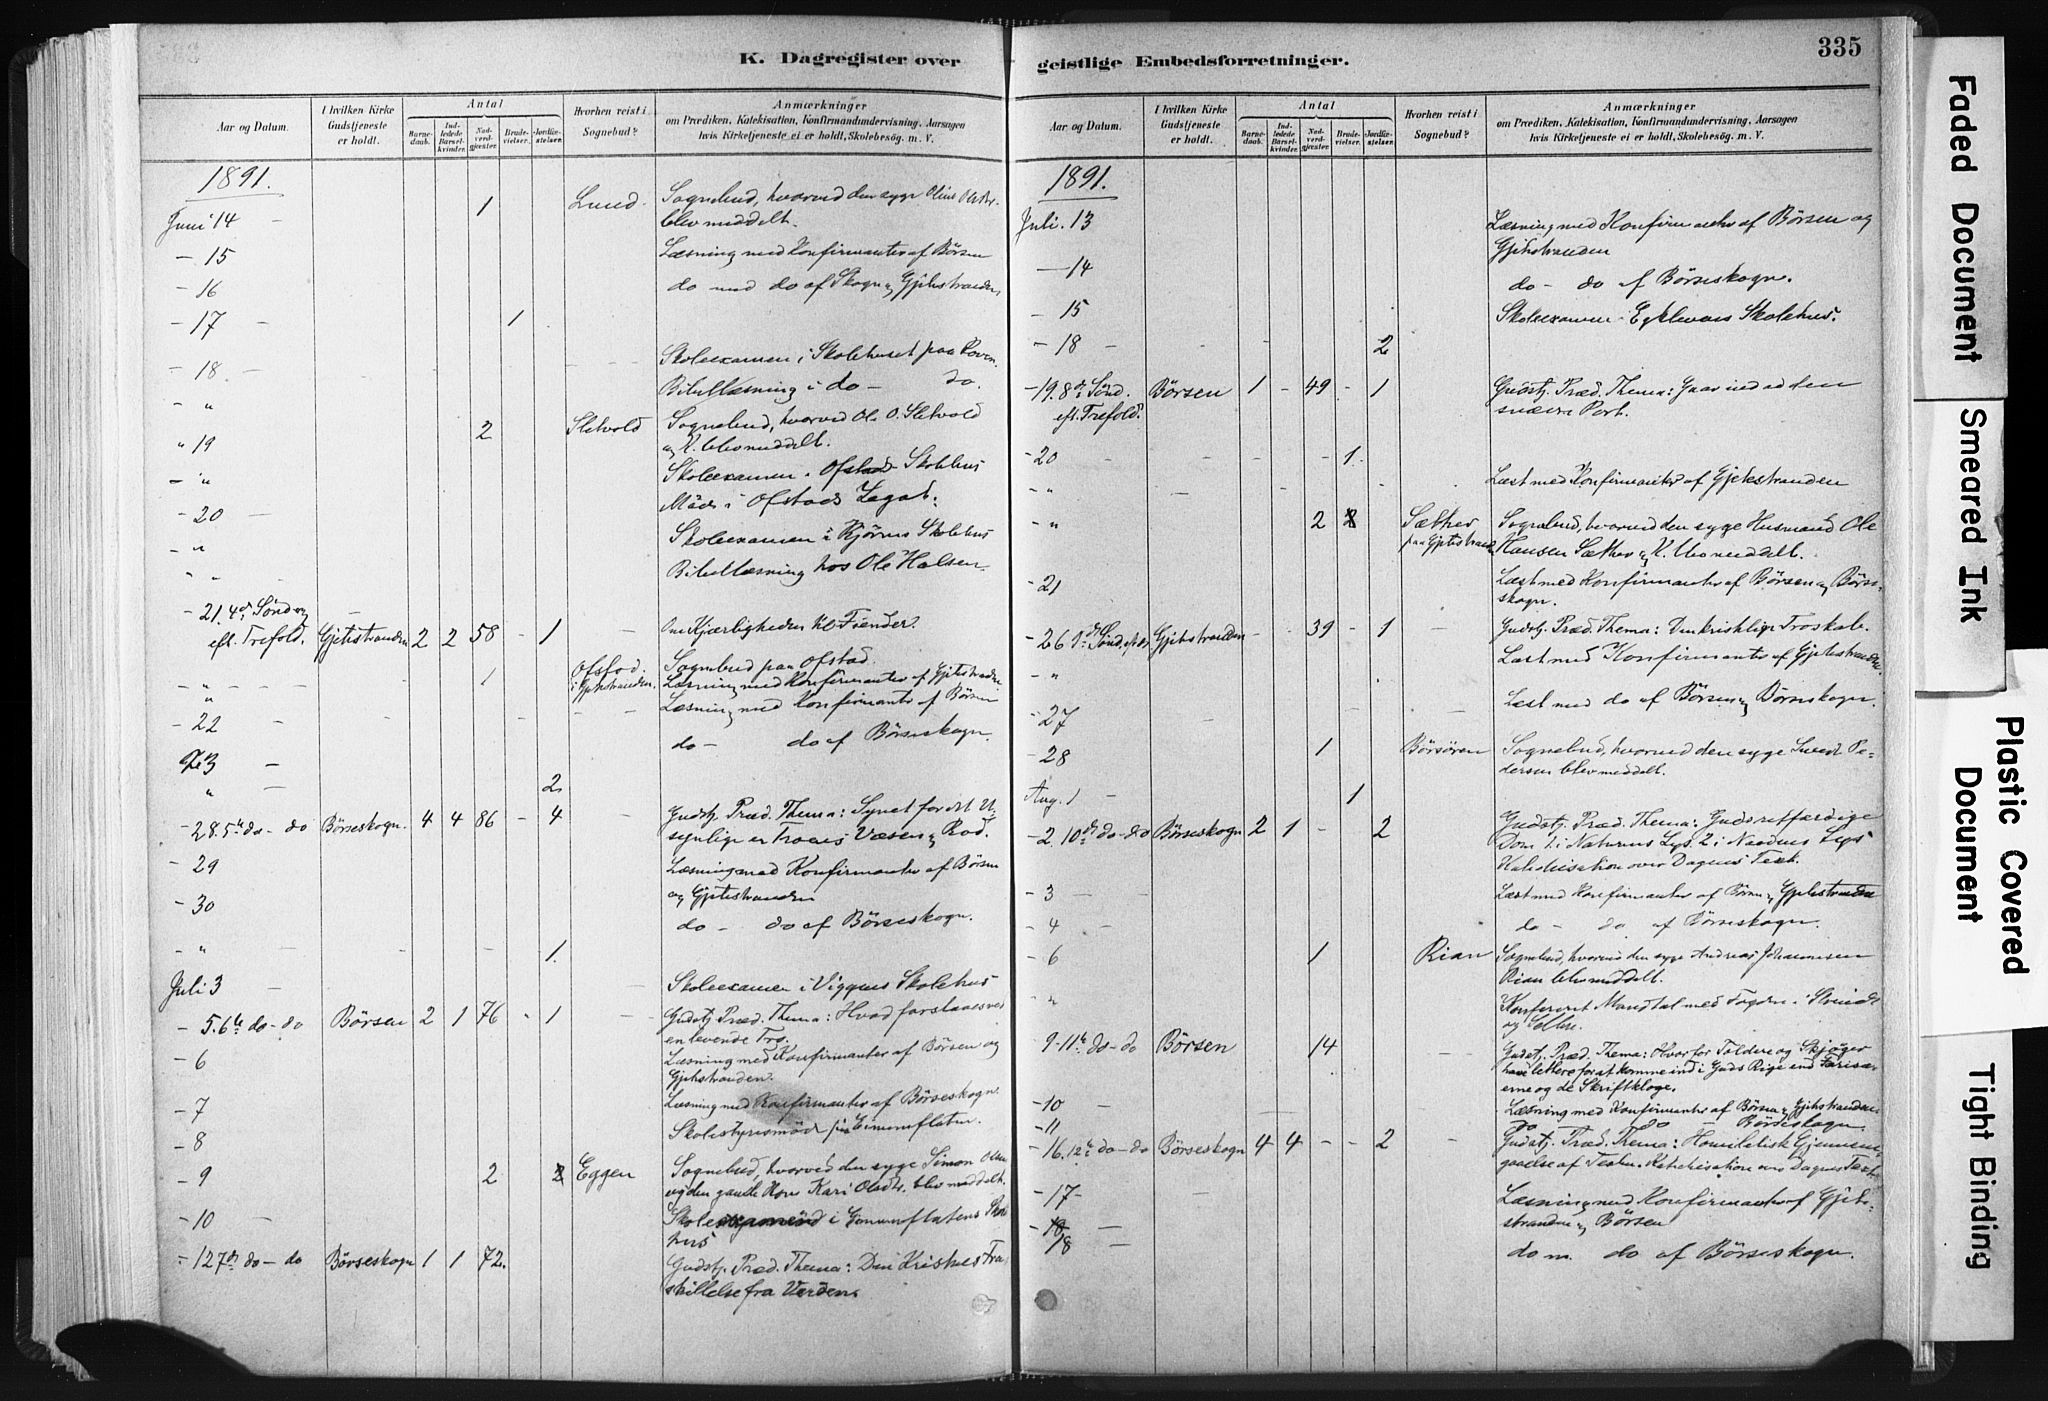 K. Dagregister over
Aar og Datum.
I hvilken Kirke Gudstjeneste er holdt.
Antal
Barnedaab.
Indledede Barselkvinder.
Nadverdgjæster.
Brudevielser.
Jordfæstelser.
Hvorhen reist i Sognebud?
Anmærkninger
om Prædiken, Katekisation, Konfirmandundervisning, Aarsagen
hvis Kirketjeneste ei er holdt, Skolebesøg. m. V.
1891.
Juni 14 - 1 Lund Sognebud, hvorved den syge Olius
blev meddelt.
- 15 Læsning med Konfirmanter af Börsen
- 16 do med do af Skogn og Gjetestranden,
- 17 - 1
- 18 - Skoleexamen i Skolehuset paa
- " Bibellæsning i do - do.
" 19 2 Sletvold Sognebud, hvorved Ole O. Sletvold
og K. blev meddelt.
- " Skoleexamen i Ofstads Skolehus
- 20 - Möde i Ofstads Legat.
- " Skoleexamen i Kjörens Skolehus
- " Bibellæsning hos Ole Halsen
- 21. 4de Sönd
eft. Trefold. Gjetestranden 2 2 58 - 1 - Om Kjærligheden til Fiender.
- " 1 Ofstad i Gjetestranden. Sognebud paa Ofstad.
" Læsning med Konfirmanter af Gjetestranden
- 22 - Læsning med Konfirmanter af Börsen
23 - do - do af Börseskogn.
" - 2
- 28. 5te do - do Börseskogn. 4 4 86 - 4 Gudstj. Præd. Thema: Synet for det U-
synlige er Troens Væsen og Rod.
- 29 Læsning med Konfirmanter af Börsen
og Gjetestranden
- 30 do - do af Börseskogn.
- " 1.
Juli 3 - Skoleexamen i Viggens Skolehus
- 5. 6te do - do Börsen 2 1 76 - 1 - Gudstj. Præd. Thema: Hvad forstaaes ved
en levende Tro.
- 6 Læsning med Konfirmanter af Börsen og
Gjetestranden.
- 7 Læsning med Konfirmanter af Börseskogn.
- 8 Skolestyresmöde
- 9 2 2 Eggen Sognebud, hvorved den syge Simon
og den gamle Kone Kari Olsdtr. blev meddelt.
- 10 - Skole i Gimmeflatens Skole
hus
- 12 7de do - do Börseskogn 1 1 72. Gudstj. Præd. Thema: Den Kristnes
skillelse fra Verden.
geistlige Embedsforretninger.
335
Aar og Datum.
I hvilken Kirke Gudstjeneste er holdt.
Antal
Barnedaab.
Indledede Barselkvinder.
Nadverdgjæster.
Brudevielser.
Jordfæstelser.
Hvorhen reist i Sognebud?
Anmærkninger
om Prædiken, Katekisation, Konfirmandundervisning, Aarsagen
hvis Kirketjeneste ei er holdt, Skolebesøg. m. V.
1891.
Juli. 13 Læsning med Konfirmanter af Börsen og
Gjetestranden
- 14 do - do af Börseskogn.
- 15 Skoleexamen i Skolehus.
- 18 - 2
- 19. 8de Sönd. Börsen 1 - 49 - 1 Gudstj. Præd. Thema: Gaar ind ad den
eft. Trefold. snævre Port.
- 20 - 1.
- " Læst med Konfirmanter af Gjetestranden
- " 2 2 Sæther Sognebud, hvorved den syge Husmand Ole
paa Gjetestrand Hansen Sæther og K. blev meddelt.
- 21 Læst med Konfirmanter af Börsen og Börse-
skogn.
- 26 9de Sönd. Gjetestranden - - 39 - 1 - Gudstj. Præd. Thema: Den kristelige
- " Læst med Konfirmanter af Gjetestranden
- 27 Læst med do af Börsen og Börseskogn.
- 28 1 Börsören Sognebud, hvorved den syge Pe-
dersen blev meddelt.
Aug. 1 - 1
- 2. 10de do - do Börseskogn 2 1 - 2 Gudstj. Præd. Thema: Guds retfærdige
Dom 1. i Naturens Lys. 2 i Naadens Lys
Katekisation over Dagens Text.
- 3 - Læst med Konfirmanter af Börsen og Gjetestranden
- 4 - do - do af Börseskogn.
- 6 1 Rian Sognebud, hvorved den syge Andreas Johannesen
Rian blev meddelt.
" Konfereret Mandtal med Fogden i
og
9 - 11te do - do Börsen 14 - Gudstj. Præd. Thema: Hvorfor Toldere og Skjöger
have lettere for at komme ind i Guds Rige end Farisæ-
erne og de Skriftkloge.
- 10 - Læsning med Konfirmanter af Börsen og Gjetestranden
- 11 do do - Börseskogn.
- 16. 12te do - do Börseskogn 4 4 - - 2 - Gudstj. Præd. Thema: Homiletisk Gjennem-
gaaelse af Texten. Katekisation over Dagens Text.
- 17 - Læsning med Konfirmanter af Gjete-
stranden og Börsen
- 18 - do m. do af Börseskogn.
Faded Document
Smeared Ink
Plastic Covered Document
Tight Binding